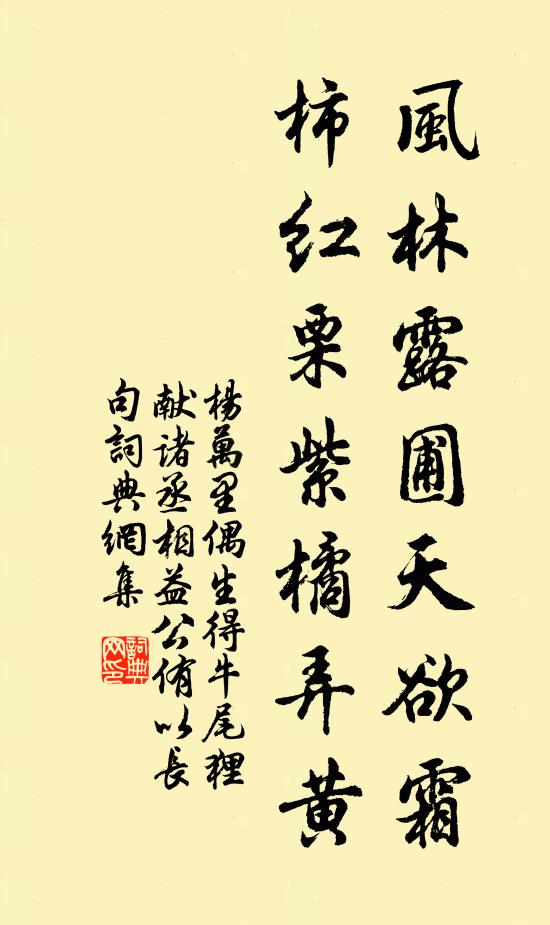 風林露圃天欲霜
柿红栗紫橘弄黄
楊萬里偶生得牛尾狸
献诸丞相益公侑以長
句詞典網集
詞典
网印